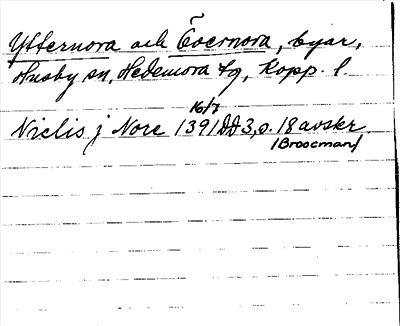 Ytternora och Övernora, byar,
Husby sn, Hedemora tg, Kopp. l.
16/7
Niclis j Nore 1391 DD3, s. 18 avskr.
/Broocman/